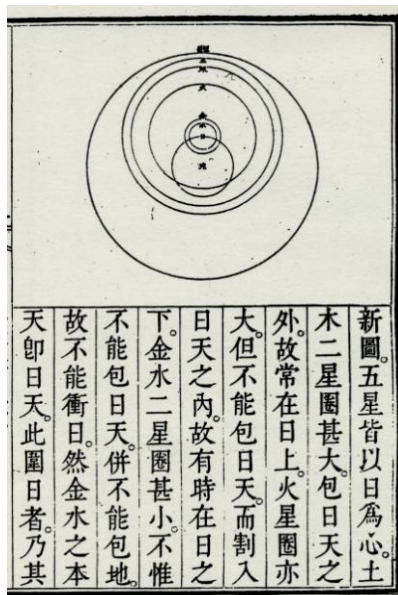 土
木
火
金
水
日
地
新圖。五星皆以日爲心。土
木二星圏甚大。包日天之
外。故常在日上。火星圏亦
大。但不能包日天。而割入
日天之內。故有時在日之
下。金水二星圏甚小。不惟
不能包日天。併不能包地。
故不能衝日。然金水之本
天卽日天。此圍日者。乃其